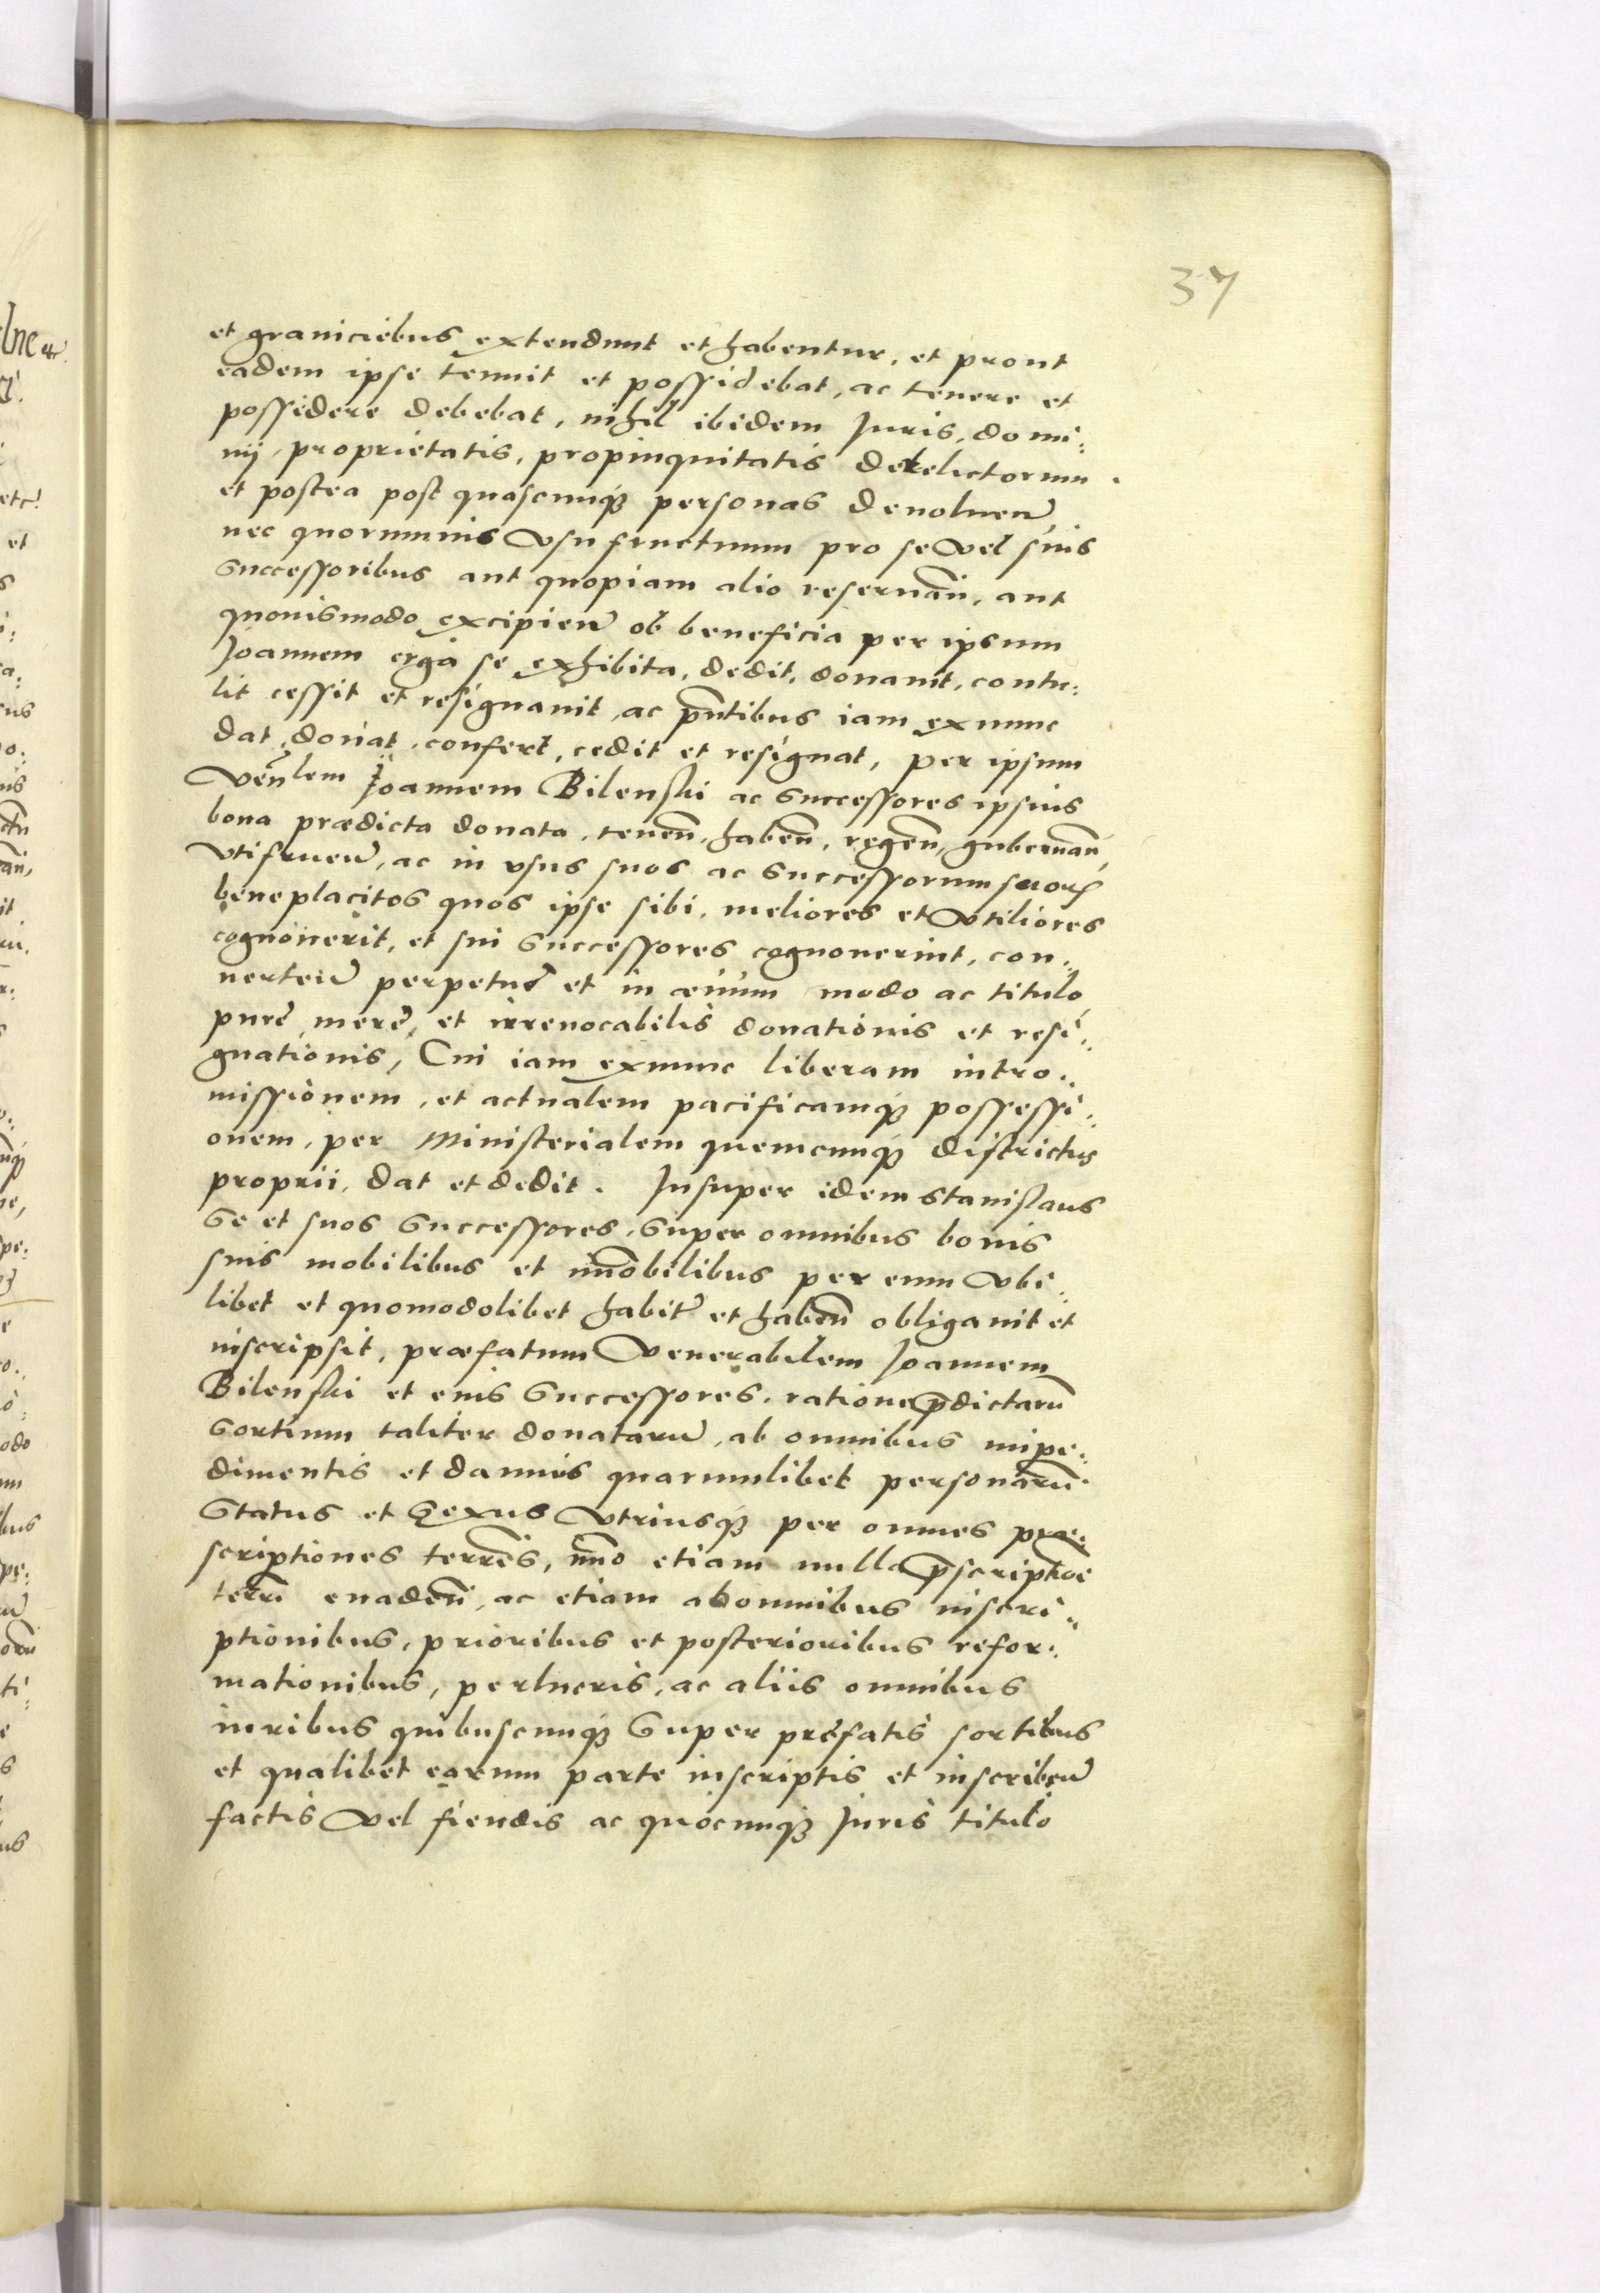 37
et graniciebus extendunt et habentur, et prout
eadem ipse tenuit et possidebat, ac tenere et
possidere debebat, nihil ibidem Juris, domi:
nij, proprietatis, propinquitatis derelictorum
et postea post quascunq3 personas deuoluen̄
nec quorumuis vsufructuum pro se vel suis
successoribus aut quopiam alio reseruan̄, aut
quouismodo excipien̄ ob beneficia per ipsum
Joannem erga se exhibita, dedit, donauit, contu:
lit cessit et resignauit, ac pn̄tibus iam exnunc
dat, donat, confert, cedit et resignat, per ipsum
Ven̄lem Joannem Bilenski ac successores ipsius
bona prædicta donata, tenen̄, haben̄, regen̄, gubernan̄,
vtifruen̄, ac in vsus suos ac successorum suor̄
beneplacitos quos ipse sibi, meliores et vtiliores
cognouerit, et sui successores cognouerint, con:
uerten̄ perpetuè et in æuum modo ac titulo
purè merè, et irreuocabilis donationis et resi:
gnationis, Cui iam exnunc liberam intro:
missionem, et actualem pacificamq3 possessi:
onem, per Ministerialem quemcunq3 districtus
proprii, dat et dedit. Insuper idem Stanislaus
se et suos successores, super omnibus bonis
suis mobilibus et im̄obilibus per eum vbi:
libet et quomodolibet habit̄ et haben̄ obligauit et
inscripsit, præfatum Venerabilem Joannem
Bilenski et eius successores, ratione p̄dictarū
sortium taliter donatarū, ab omnibus impe:
dimentis et damnis quarumlibet personarū
status et sexus vtriusq3 per omnes præ:
scriptiones terren̄s, im̄o etiam nulla p̄scriptōe
terrī euaden̄, ac etiam abomnibus inscri:
ptionibus, prioribus et posterioribus refor:
mationibus, perlucris, ac aliis omnibus
iuribus quibuscunq3 super præfatis sortibus
et qualibet earum parte inscriptis et inscriben̄
factis vel fiendis ac quocunq3 Juris titulo